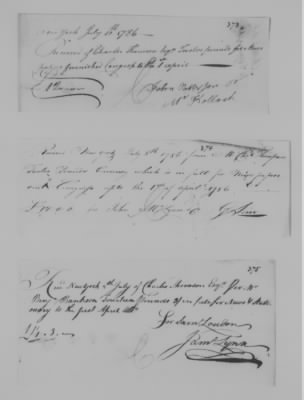 373
New York July 10th 1786
Received of Charles Thomson Esqr Twelve pounds for News
papers furnished Congress to the 1st April
John Patterson for
Mr Kollock
374
New York July 8th 1786 from Mr Chas Thompson
Twelve Pounds Currency which is in full for News papers
Congress upto the 1st of April 1786
£12 0 0 for John McLean
375
Recd New York 11th July of Charles Thomson Esqr Per Mr
Benj Bankson Fourteen Pounds 3/ in full for News &
to the first April
for Saml Loudon
£14.3.
Saml